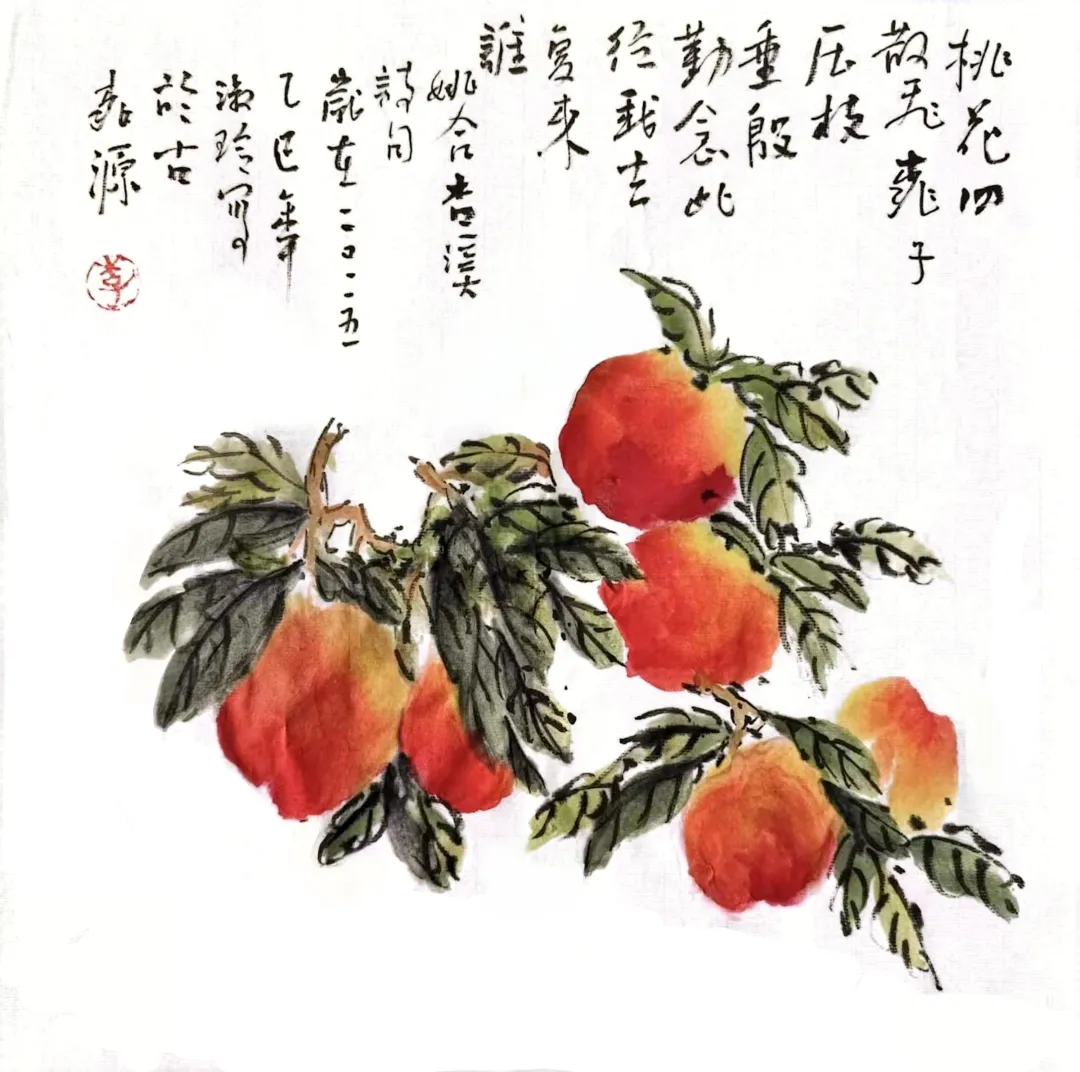 桃花四
散飛桃子
压枝
垂殷
勤念此
径我去
复来
誰
姚合杏溪
詩句
歲在二〇二五
乙巳年
淑玲写
於古
桃源